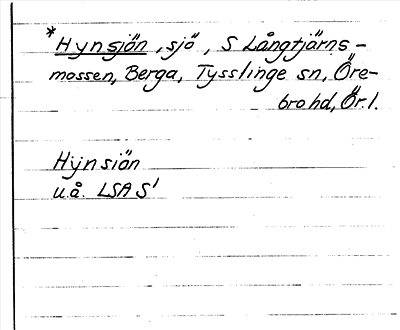 *Hynsjön, sjö, S Långtjärns-
mossen, Berga, Tysslinge sn, Öre-
bro hd, Ör. l.
Hÿnsiön
u.å. LSA S¹